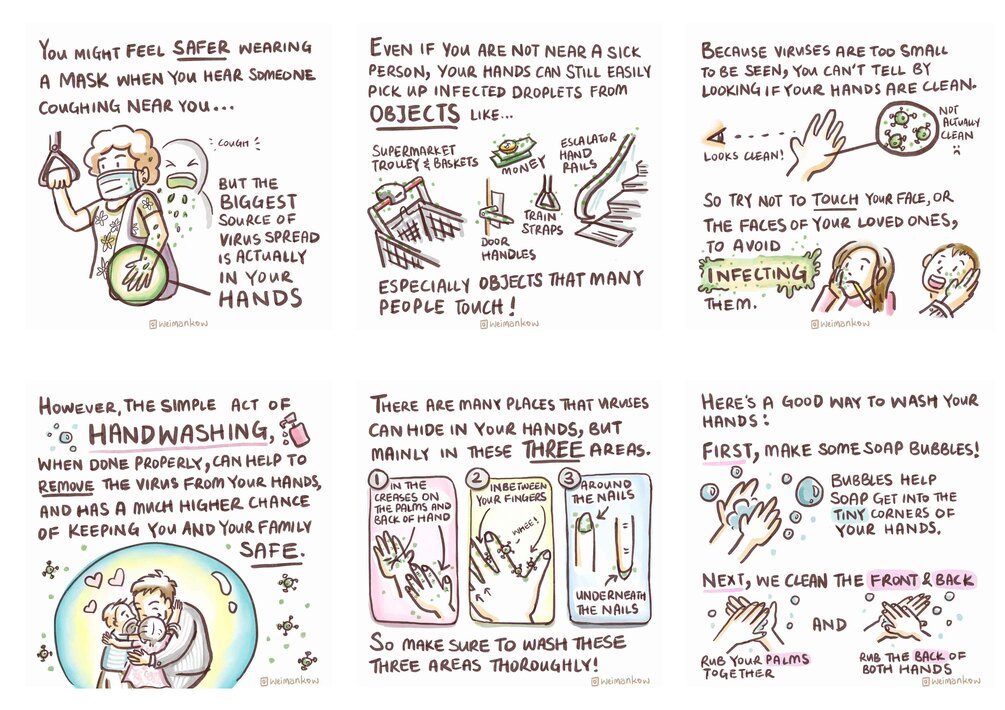 YOU MIGHT FEEL SAFER WEARING
A MASK WHEN YOU HEAR SOMEONE
COUGHING NEAR YOU...
COUGH
BUT THE
BIGGEST
SOURCE OF
VIRUS SPREAD
IS ACTUALLY
IN YOUR
HANDS
weimankow
EVEN IF YOU ARE NOT NEAR A SICK
PERSON, YOUR HANDS CAN STILL EASILY
PICK UP INFECTED DROPLETS FROM
OBJECTS LIKE...
SUPERMARKET
TROLLEY & BASKETS
MONEY
ESCALATOR
HAND
RAILS
TRAIN
STRAPS
DOOR
HANDLES
ESPECIALLY OBJECTS THAT MANY
PEOPLE TOUCH!
weimankow
BECAUSE VIRUSES ARE TOO SMALL
TO BE SEEN, YOU CAN'T TELL BY
LOOKING IF YOUR HANDS ARE CLEAN.
LOOKS CLEAN!
NOT
ACTUALLY
CLEAN
SO TRY NOT TO TOUCH YOUR FACE, OR
THE FACES OF YOUR LOVED ONES,
TO AVOID
INFECTING
THEM.
weimankow
HOWEVER, THE SIMPLE ACT OF
HANDWASHING,
WHEN DONE PROPERLY, CAN HELP TO
REMOVE THE VIRUS FROM YOUR HANDS,
AND HAS A MUCH HIGHER CHANCE
OF KEEPING YOU AND YOUR FAMILY
SAFE.
weimankow
THERE ARE MANY PLACES THAT VIRUSES
CAN HIDE IN YOUR HANDS, BUT
MAINLY IN THESE THREE AREAS.
1 IN THE
CREASES ON
THE PALMS AND
BACK OF HAND
2 INBETWEEN
YOUR FINGERS
WHEE!
3 AROUND
THE NAILS
UNDERNEATH
THE NAILS
SO MAKE SURE TO WASH THESE
THREE AREAS THOROUGHLY!
weimankow
HERE'S A GOOD WAY TO WASH YOUR
HANDS:
FIRST, MAKE SOME SOAP BUBBLES!
BUBBLES HELP
SOAP GET INTO THE
TINY CORNERS OF
YOUR HANDS.
NEXT, WE CLEAN THE FRONT & BACK
AND
RUB YOUR PALMS
TOGETHER
RUB THE BACK OF
BOTH HANDS
weimankow